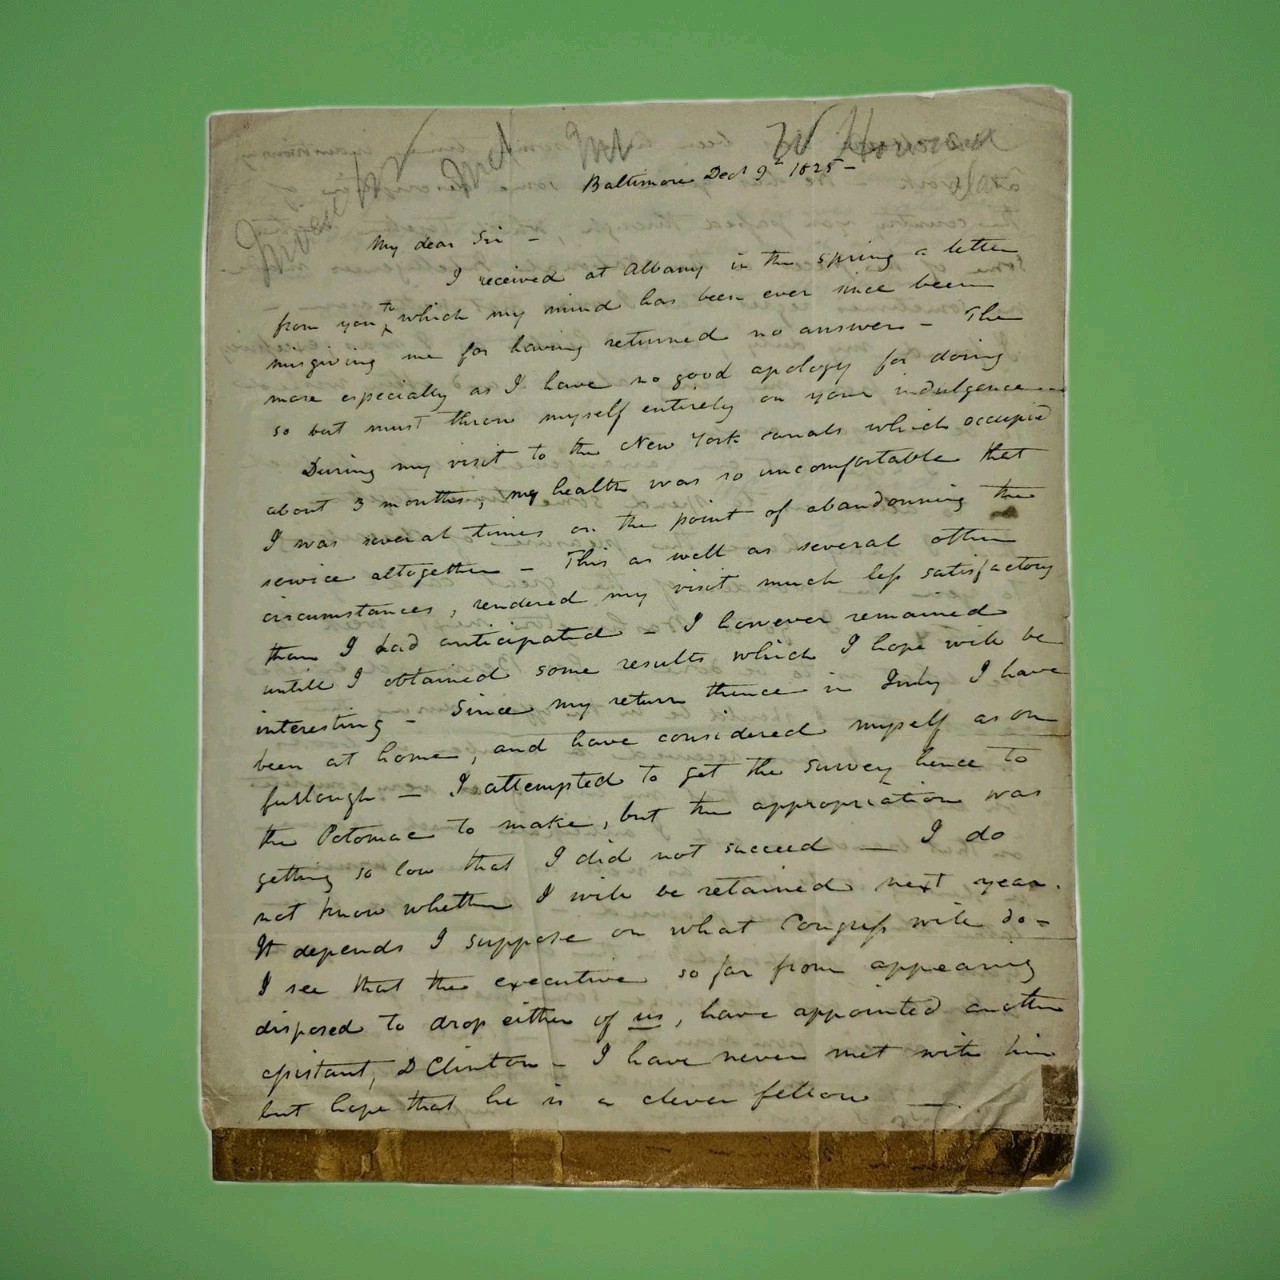 W Howard
Baltimore Dec 9th 1825 –
My dear Sir –
I received at Albany in the spring a letter
from you to which my mind has been ever since been
misgiving me for having returned no answer – The
more especially as I have no good apology for doing
so but must throw myself entirely on your indulgence
During my visit to the New York canals which occupied
about 3 months, my health was so uncomfortable that
I was several times on the point of abandonning the
service altogether – This as well as several other
circumstances, rendered my visit much less satisfactory
than I had anticipated – I however remained
untill I obtained some results which I hope will be
interesting – Since my return thence in July I have
been at home, and have considered myself as on
furlough – I attempted to get the survey hence to
the Potomac to make, but the appropriation was
getting so low that I did not succeed — I do
not know whether I will be retained next year.
It depends I suppose on what Congress will do –
I see that the executive so far from appearing
disposed to drop either of us, have appointed another
assistant, D Clinton – I have never met with him
but hope that he is a clever fellow —